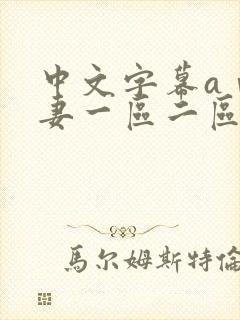 中文字幕a
妻一區二區
馬尔姆斯特倫